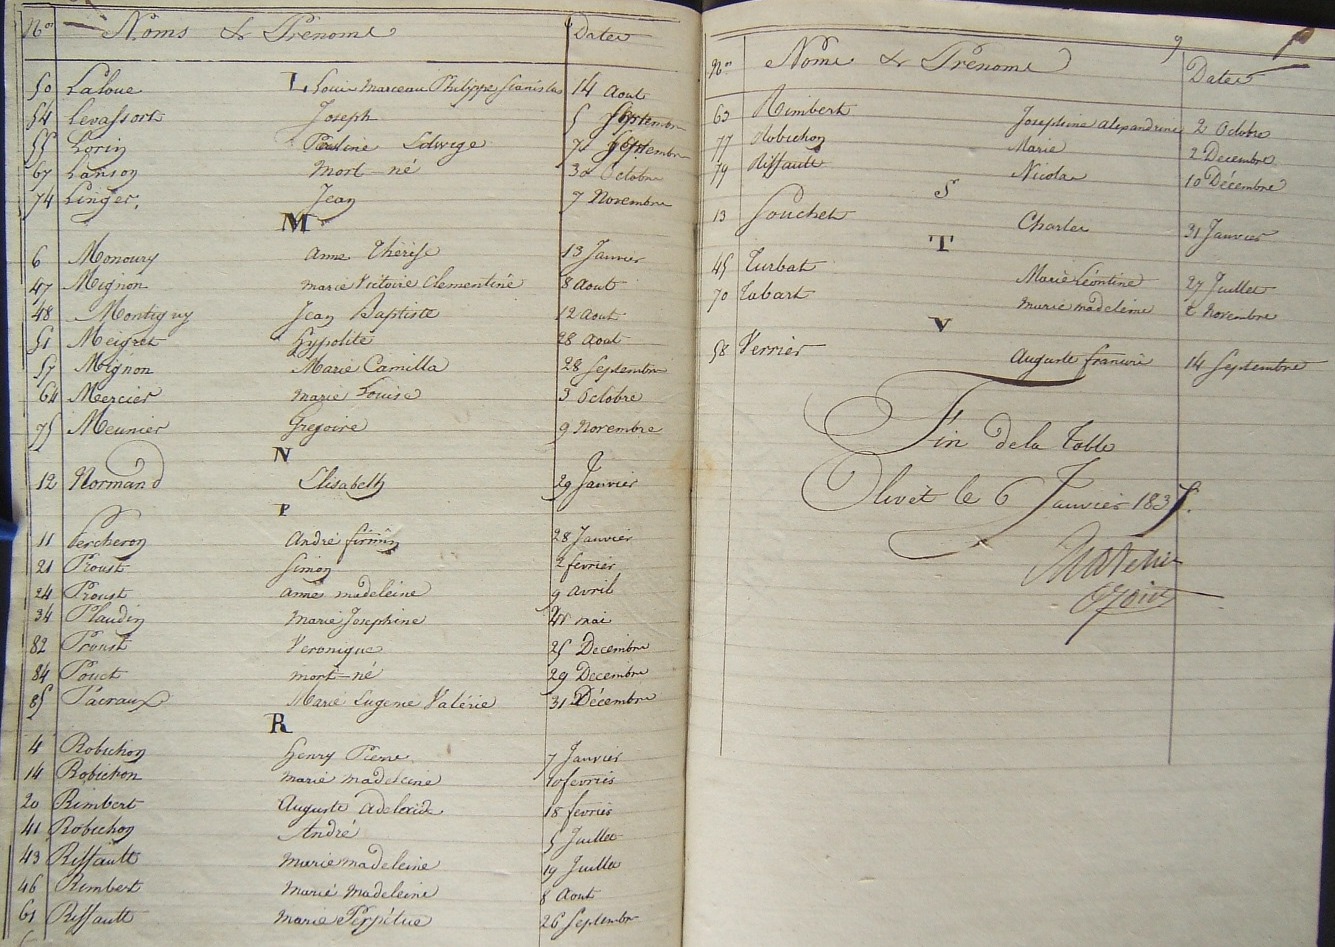 Nos Noms & Prénoms Dates
L
50 Laloue Louis Marceau Philippe Stanislas 14 Aout
54 Levassort Joseph 5 Septembre
55 Lorin Pauline Edwige 7 Septembre
67 Lanson mort-né 30 Octobre
74 Linger. Jean 7 Novembre
M
6 Monoury Anne Thérèse 13 Janvier
47 Mignon marie Victoire Clementine 8 Aout
48 Montigny Jean Baptiste 12 Aout
51 Meigret Hypolite 28 Aout
57 Mignon Marie Camilla 28 Septembre
64 Mercier marie Louise 3 Octobre
75 Meunier Gregoire 9 Novembre
N
12 Normand Elisabeth 29 Janvier
P
11 Percheron André firmin 28 Janvier
21 Proust Simon 2 fevrier
24 Proust Anne madeleine 9 avril
34 Plaudin marie Josephine mai
82 Proust Veronique 25 Decembre
84 Pouct mort-né 29 Decembre
85 Pacraux Marie Eugenie Valérie 31 Décembre
R
4 Robichon Henry Pierre 7 Janvier
14 Robichon marie madeleine 10 fevrier
20 Rimbert Auguste Adelaide 18 fevrier
41 Robichon André 5 Juillet
43 Riffault Marie madeleine 19 Juillet
46 Rimbert Marie Madeleine 8 Aout
61 Riffault Marie Perpétue 26 Septembre
9
Nos Noms & Prénoms Dates
63 Rimbert Josephine alexandrine 2 Octobre
77 Robichon Marie 2 Decembre
79 Riffault Nicolas 10 Décembre
S
13 Souchet Charles 31 Janvier
T
45 Turbat Marie Léontine 27 Juillet
70 Tabart marie madeleine Novembre
V
58 Verrier Auguste francois 14 Septembre
Fin de la Table
Olivet le 6 Janvier 1837.